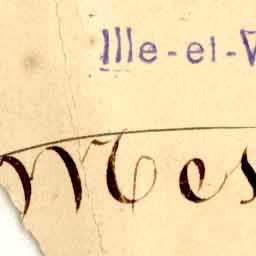 Ille-et-V
Mes